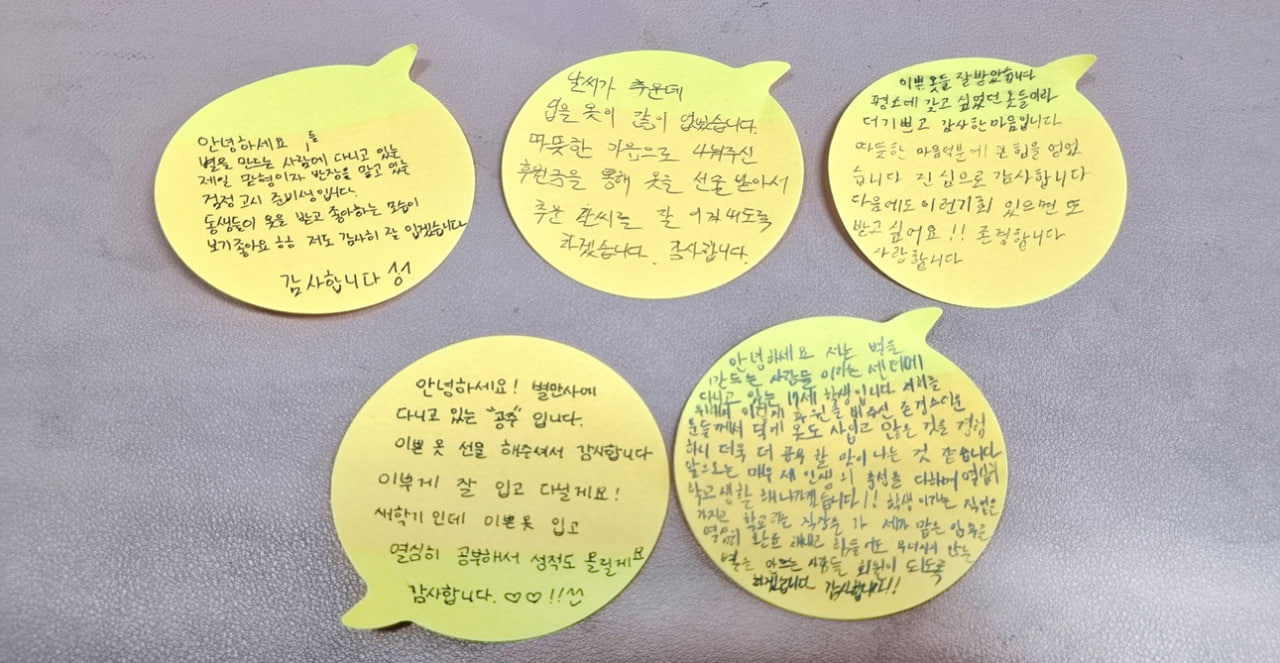 안녕하세요
별을 만드는 사람들에 다니고 있는
제일 맏형이자 반장을 맡고 있는
검정고시 준비생입니다.
동생들이 옷을 받고 좋아하는 모습이
보기좋아요 ㅎㅎ 저도 감사히 잘 입겠습니다
감사합니다
날씨가 추운데
입을 옷이 많이 없었습니다.
따뜻한 마음으로 나눠주신
후원금을 통해 옷을 선물 받아서
추운 날씨를 잘 이겨내도록
하겠습니다. 감사합니다.
이쁜 옷들 잘 받았습니다
평소에 갖고 싶었던 옷들이라
더 기쁘고 감사한 마음입니다
따듯한 마음덕분에 큰 힘을 얻었
습니다 진심으로 감사합니다
다음에도 이런기회 있으면 또
받고 싶어요 !! 존경합니다
사랑합니다
안녕하세요! 별만사에
다니고 있는 "공주" 입니다.
이쁜 옷 선물 해주셔서 감사합니다
이쁘게 잘 입고 다닐게요!
새학기인데 이쁜옷 입고
열심히 공부해서 성적도 올릴게요
감사합니다. ♡♡!!
안녕하세요 저는 별을
만드는 사람들 이라는 센터에
다니고 있는 17세 학생입니다 저희를
위해서 이렇게 후원을 해주신 존경스러운
분들께서 덕에 옷도 사입고 많은 것을 경험
하니 더욱 더 공부 할 맛이 나는 것 같습니다
앞으로는 매우 제 인생의 충성을 다하며 열심히
학교생활 해나가겠습니다!! 학생 이라는 직업을
가지고 학교라는 직장을 가 제가 맡은 임무를
역임히 완료 해내고 힘들어도 무너지지 않는
별을 만드는 사람들 회원이 되도록
하겠습니다 감사합니다!!